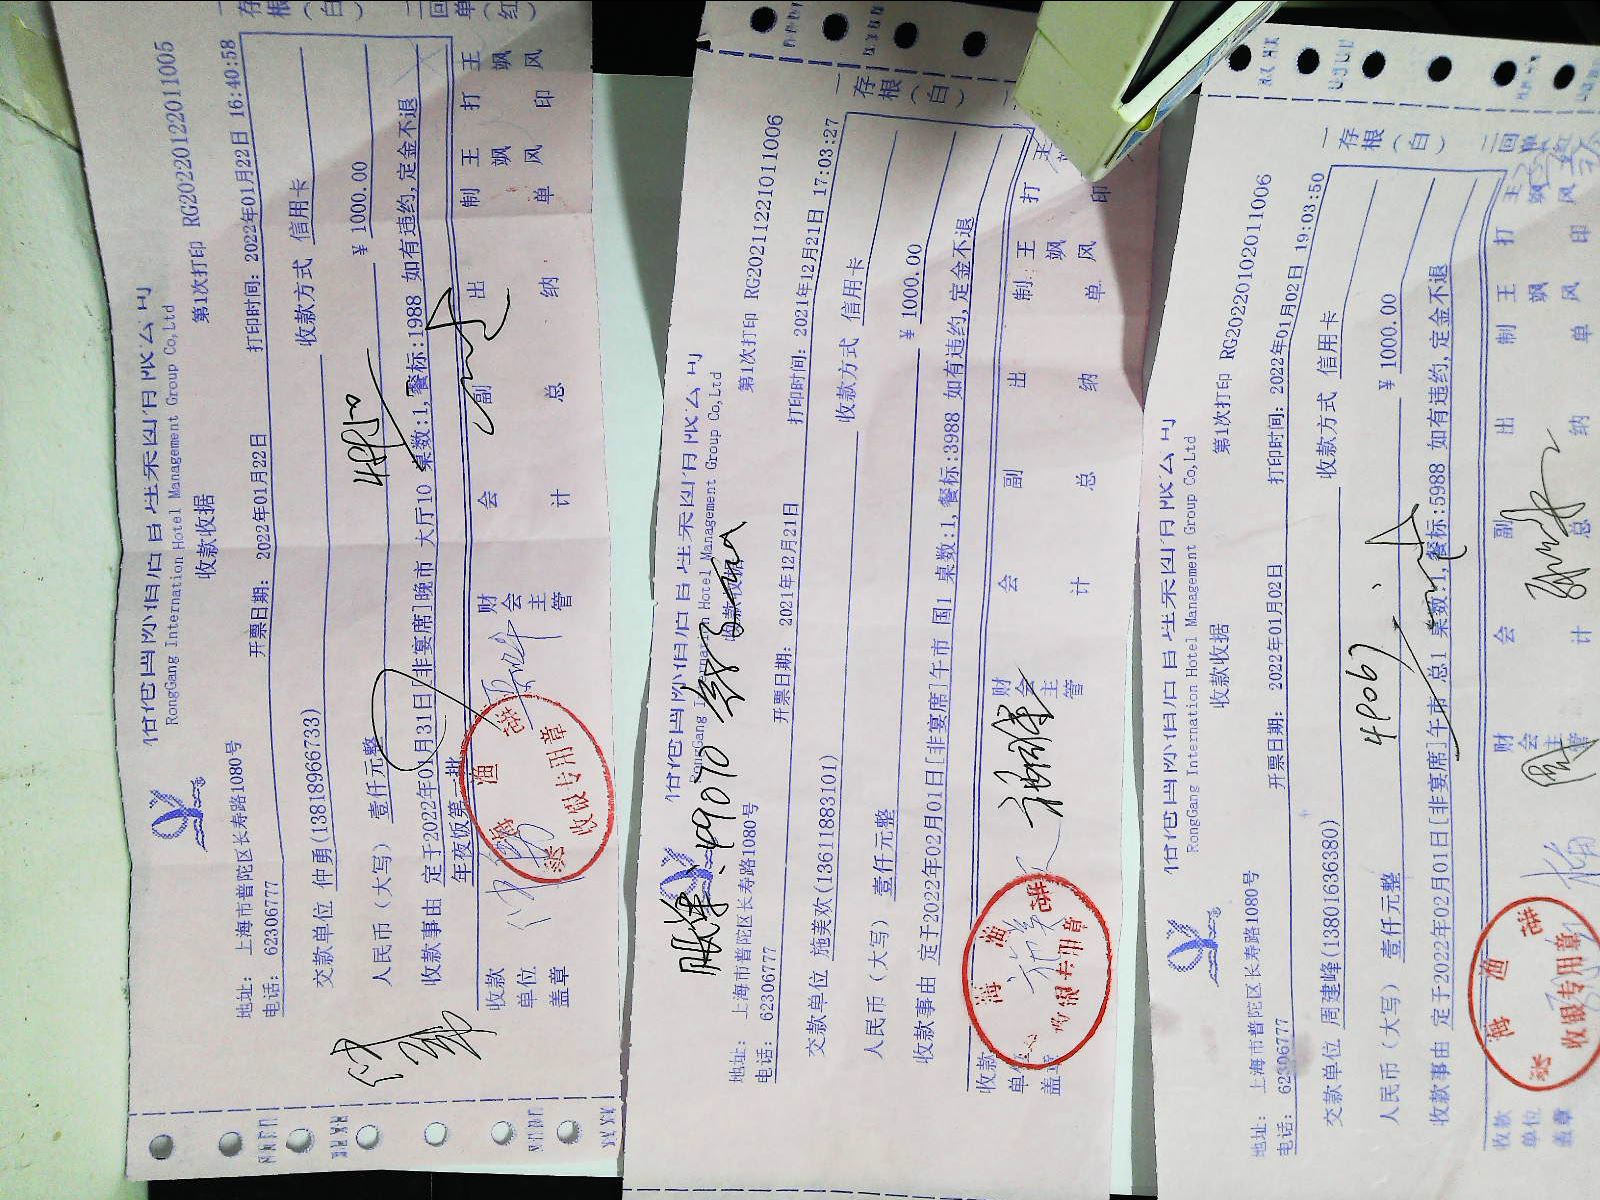 RongGang International Hotel Management Group Co,Ltd
收款收据
第1次打印 RG20220122011005
地址: 上海市普陀区长寿路1080号
电话: 62306777
开票日期: 2022年01月22日
打印时间: 2022年01月22日 16:40:58
交款单位 仲勇(13818966733)
收款方式 信用卡
人民币(大写) 壹仟元整
¥ 1000.00
收款事由 定于2022年01月31日[非宴席]晚市 大厅10 桌数:1,餐标:1988 如有违约,定金不退
年夜饭第一批
收款单位盖章
财会主管
会计
副总
出纳
制单 王飒风
打印 王飒风
一存根(白)
二回单(红)
收银专用章
RongGang International Hotel Management Group Co,Ltd
收款收据
第1次打印 RG20211221011006
49070
地址: 上海市普陀区长寿路1080号
电话: 62306777
开票日期: 2021年12月21日
打印时间: 2021年12月21日 17:03:27
交款单位 施美欢(13611883101)
收款方式 信用卡
人民币(大写) 壹仟元整
¥ 1000.00
收款事由 定于2022年02月01日[非宴席]午市 国1 桌数:1,餐标:3988 如有违约,定金不退
收款单位盖章
财会主管
会计
副总
出纳
制单 王飒风
打印 王
一存根(白)
收银专用章
RongGang International Hotel Management Group Co,Ltd
收款收据
第1次打印 RG20220102011006
地址: 上海市普陀区长寿路1080号
电话: 62306777
开票日期: 2022年01月02日
打印时间: 2022年01月02日 19:03:50
交款单位 周建峰(13801636380)
收款方式 信用卡
49067
人民币(大写) 壹仟元整
¥ 1000.00
收款事由 定于2022年02月01日[非宴席]午市 总1 桌数:1,餐标:5988 如有违约,定金不退
收款单位盖章
财会主管
会计
副总
出纳
制单 王飒风
打印 王飒风
一存根(白)
二回单
收银专用章